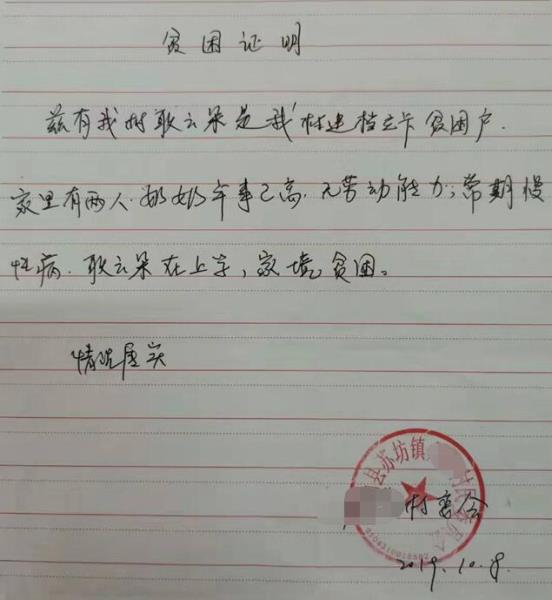 贫困证明
兹有我村耿云朵是我村建档立卡贫困户.
家里有两人.奶奶年事已高.无劳动能力;常期慢
性病.耿云朵在上学,家境贫困。
情况属实
县苏坊镇
村委会
2019.10.8